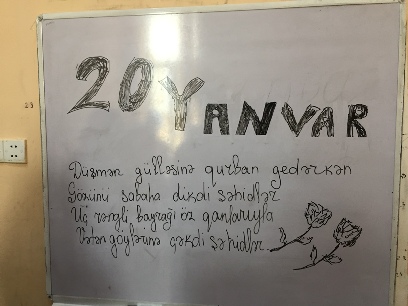 20 YANVAR
Düşmən gülləsinə qurban gedərkən
Gözünü sabaha dikdi şəhidlər
Üç rəngli bayrağı öz qanlarıyla
Vətən göylərinə çəkdi şəhidlər.